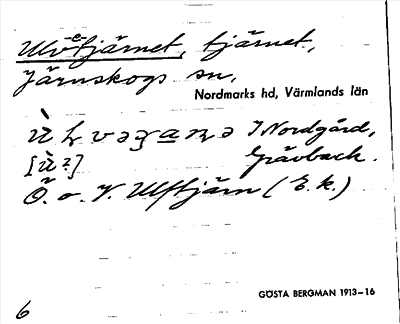 Ulvetjärnet, tjärnet,
Järnskogs sn,
Nordmarks hd, Värmlands län
I Nordgård,
[ù?] Grävback.
Ö. o. V. Ulftjärn (E.k.)
GÖSTA BERGMAN 1913–16
6